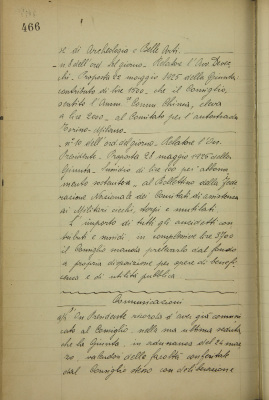 466
di Archeologia e Belle Arti.
n. 8 dell'ord. del giorno. Relatore l'Avv.
Proposta 22 maggio 1925 della Giunta,
contributo di lire 1500, che il Consiglio,
sentito l'Assess. eleva
a lire 2000, al Comitato per l'autostrada
Torino-Milano.
n. 10 dell'ord. del giorno. Relatore l'On.
Presidente. Proposta 21 maggio 1925 della
Giunta. Sussidio di lire 200 per abbona
mento sostenitore al Bollettino della Fede
razione Nazionale dei Comitati di assistenza
ai Militari ciechi, storpi e mutilati.
L'importo di tutti gli anzidetti con
tributi e sussidi in complessive lire 3700
il Consiglio manda prelevarsi dal fondo
a propria disposizione per opere di benefi
cenza e di utilità pubblica.
Comunicazioni
On. Presidente ricorda d'aver già comuni
cato al Consiglio, nella sua ultima seduta
che la Giunta, in adunanza del 24 mar
zo, valendosi delle facoltà conferitele
dal Consiglio stesso con deliberazione